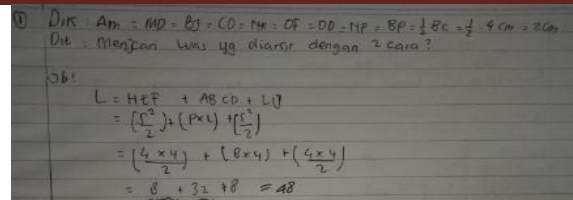 ① Dik : Am = MD = BJ = CD = MK = OF = OD = MP = BP = 1/2 BC = 1/2 . 4 cm = 2 cm
Dit : Menjcari luas yg diarsir dengan 2 cara ?
Job :
L = HEF + ABCD + LIJ
= (S²/2) + (P×L) + (S²/2)
= (4 × 4 / 2) + (8×4) + (4 × 4 / 2)
= 8 + 32 + 8 = 48